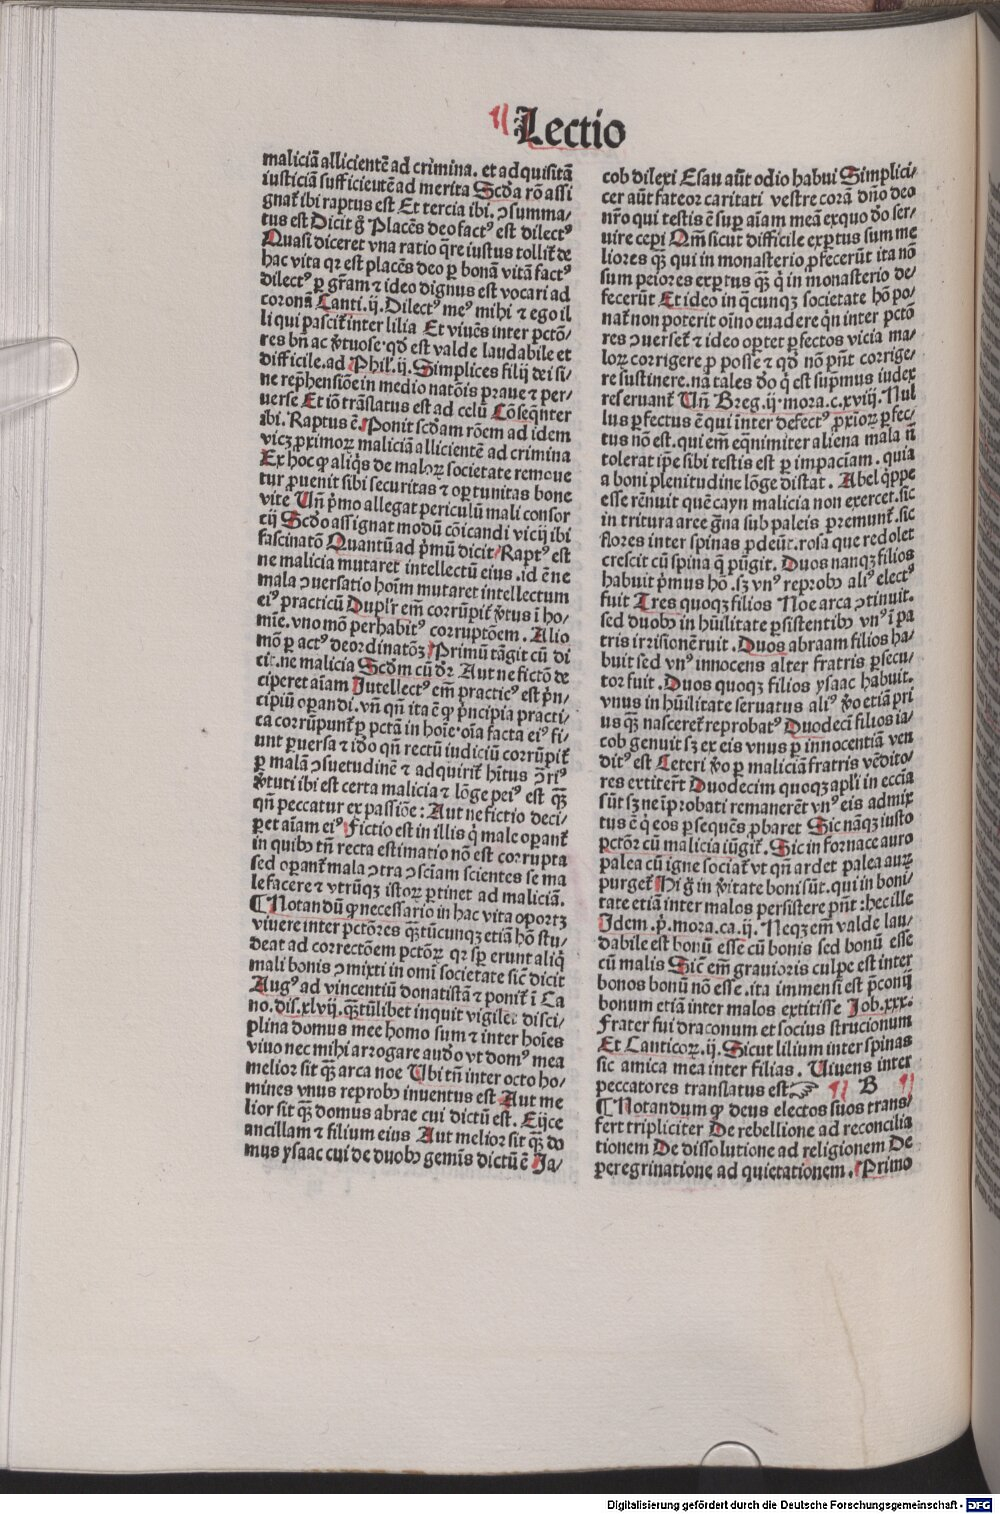 Lectio
maliciā allicientē ad crimina. et ad quisitā
iusticiā sufficieutē ad merita Scďa rō assi
gnat᷑ ibi raptus est Et tercia ibi. ꝯsumma/
tus est Dicit g̊ Placēs deo factꝰ est dilectꝰ
Quasi diceret vna ratio q̄re iustus tollit᷑ de
hac vita qꝛ est placēs deo ꝑ bonā vitā factꝰ
dilectꝰ ꝑ gr̄am ⁊ ideo dignus est vocari ad
coronā Canti.ij. Dilectꝰ meꝰ mihi ⁊ ego il
li qui pascit᷑ inter lilia Et viuēs inter pctō/
res bn̄ ac v̓tuose·qď est valde laudabile et
difficile.ad Phil᷑.ij. Simplices filij dei si/
ne rep̄hensiōe in medio natōis praue ⁊ per/
uerse Et iō trāslatus est ad celū Cōseq̄nter
ibi. Raptus ē. Ponit scďam rōem ad idem
vicꝫ ꝓximoꝝ maliciā allicientē ad crimina
Ex hoc ꝙ aliq̓s de maloꝝ societate remoue
tur ꝓuenit sibi securitas ⁊ oꝑtunitas bone
vite Un̄ p̓mo allegat periculū mali consor
cij Scďo assignat modū cōicandi vicij ibi
fascinatō Quantū ad p̓mū dicit Raptꝰ est
ne malicia mutaret intellectū eius .id ē ne
mala ꝯuersatio hoīm mutaret intellectum
eiꝰ practicū Dupl᷑r em̄ corrūpit᷑ v̓tus ī ho/
mīe. vno mō per habitꝰ corruptōem. Alio
mō ꝑ actꝰ deordinatōꝫ Primū tāgit cū di
cit. ne malicia Scďm cū dr̄ Aut ne fictō de
ciperet aīam Jutellectꝰ em̄ practicꝰ est p̓n/
cipiū oꝑandi. vn̄ qn̄ ita ē ꝙ p̓ncipia practi/
ca corrūpunt᷑ ꝑ pctā in hoīe·oīa facta eiꝰ fi/
unt ꝑuersa ⁊ iďo qn̄ rectū iudiciū corrūpit᷑
ꝑ malā ꝯsuetudinē ⁊ adquirit᷑ hītus ꝯ̄riꝰ
v̓tuti ibi est certa malicia ⁊ lōge peiꝰ est qꝫ̄
qn̄ peccatur ex passiōe: Aut ne fictio deci/
ꝑet aīam eiꝰ Fictio est in illis q̓ male oꝑant᷑
in quibꝫ tn̄ recta estimatio nō est corrupta
sed oꝑant᷑ mala ꝯtra ꝯsciam scientes se ma
le facere ⁊ vtrūqꝫ istoꝝ ꝑtinet ad maliciā.
¶Notandū ꝙ necessario in hac vita oportꝫ
viuere inter pctōres qꝫ̄tūcunqꝫ etiā hō stu/
deat ad correctōem pctōꝝ qꝛ sꝑ erunt aliq̓
mali bonis ꝯmixti in omī societate sic̄ dicit
Augꝰ ad vincentiū donatistā ⁊ ponit᷑ ī Ca
no. dis.xlvij. qꝫ̄tūlibet inquit vigilet disci/
plina domus mee homo sum ⁊ inter hoīes
viuo nec mihi arrogare audo vt domꝰ mea
melior sit qꝫ̄ arca noe Ubi tn̄ inter octo ho/
mines vnus reprobꝰ inuentus est Aut me
lior sit qꝫ̄ domus abrae cui dictū est. Eijce
ancillam ⁊ filium eius Aut melior sit qꝫ̄ do
mus ysaac cui de duobꝫ gemīs dictū ē Ja/
cob dilexi Esau aūt odio habui Simplici/
cer aūt fateor caritati vestre corā dn̄o deo
nr̄o qui testis ē suꝑ aīam meā exquo ďo ser/
uire cepi Qm̄ sicut difficile exꝑtus sum me
liores qꝫ̄ qui in monasterio ꝓfecerūt ita nō
sum peiores exꝑtus qꝫ̄ q̓ in monasterio de/
fecerūt Et ideo in q̄cunqꝫ societate hō po/
nat᷑ non poterit oīno euadere q̓n inter pctō
res ꝯuerset᷑ ⁊ ideo oꝑtet ꝑfectos vicia ma/
loꝝ corrigere ꝓ posse ⁊ qď nō pn̄t corrige/
re sustinere. nā tales ďo q̓ est supͫmus iudex
reseruant᷑ Un̄ Greg.ij·mora.c.xviij. Nul
lus ꝑfectus ē qui inter defectꝰ ꝓxīoꝝ ꝑfec/
tus nō est. qui em̄ eq̄nimiter aliena mala n̄
tolerat ip̄e sibi testis est ꝑ impaciam. quia
a boni plenitudine lōge distat . Abel q̓ppe
esse rēnuit quē cayn malicia non exercet. sic
in tritura aree g̓na sub paleis p̄remunt᷑. sic
flores inter spinas ꝓdeūt. rosa que redolet
crescit cū spina q̄ pūgit. Duos nanqꝫ filios
habuit p̓mus hō .sꝫ vnꝰ reprobꝰ aliꝰ electꝰ
fuit Tres quoqꝫ filios Noe arca ꝯtinuit.
sed duobꝫ in hūilitate ꝑsistentibꝫ vnꝰ ī pa
tris irrisionē ruit . Duos abraam filios ha/
buit sed vnꝰ innocens alter fratris ꝑsecu/
tor fuit . Duos quoqꝫ filios ysaac habuit.
vnus in hūilitate seruatus aliꝰ v̓o etiā pri
us qꝫ̄ nasceret᷑ reprobatꝰ Duodecī filios ia/
cob genuit sꝫ ex eis vnus ꝑ innocentiā ven
ditꝰ est Ceteri v̓o ꝑ maliciā fratris vēdito/
res extiter̄t Duodecim quoqꝫ apl᷑i in ecc̄ia
sūt sꝫ ne īprobati remanerēt vnꝰ eis admix
tus ē q̓ eos ꝑsequēs ꝓbaret Sic nāqꝫ iusto
pctōꝝ cū malicia iūgit᷑. Sic in fornace auro
palea cū igne sociat᷑ vt qn̄ ardet palea auꝝ
purget᷑ Hi g̊ in v̓itate boni sūt. qui in boni/
tate etiā inter malos persistere pn̄t : hec ille
Jdem .p̓. mora.ca.ij. Neqꝫ em̄ valde lau/
dabile est bonū esse cū bonis sed bonū esse
cū malis Sic̄ em̄ grauioris culpe est inter
bonos bonū nō esse .ita immensi est p̄conij
bonum etiā inter malos extitisse Job.xxx.
Frater fui draconum et socius strucionum
Et Canticoꝝ.ij. Sicut lilium inter spinas
sic amica mea inter filias. Uiuens inter
peccatores translatus est☞ B
¶Notandum ꝙ deus electos suos trans/
fert tripliciter De rebellione ad reconcilia
tionem De dissolutione ad religionem De
peregrinatione ad quietationem. Primo
Digitalisierung gefördert durch die Deutsche Forschungsgemeinschaft - DFG